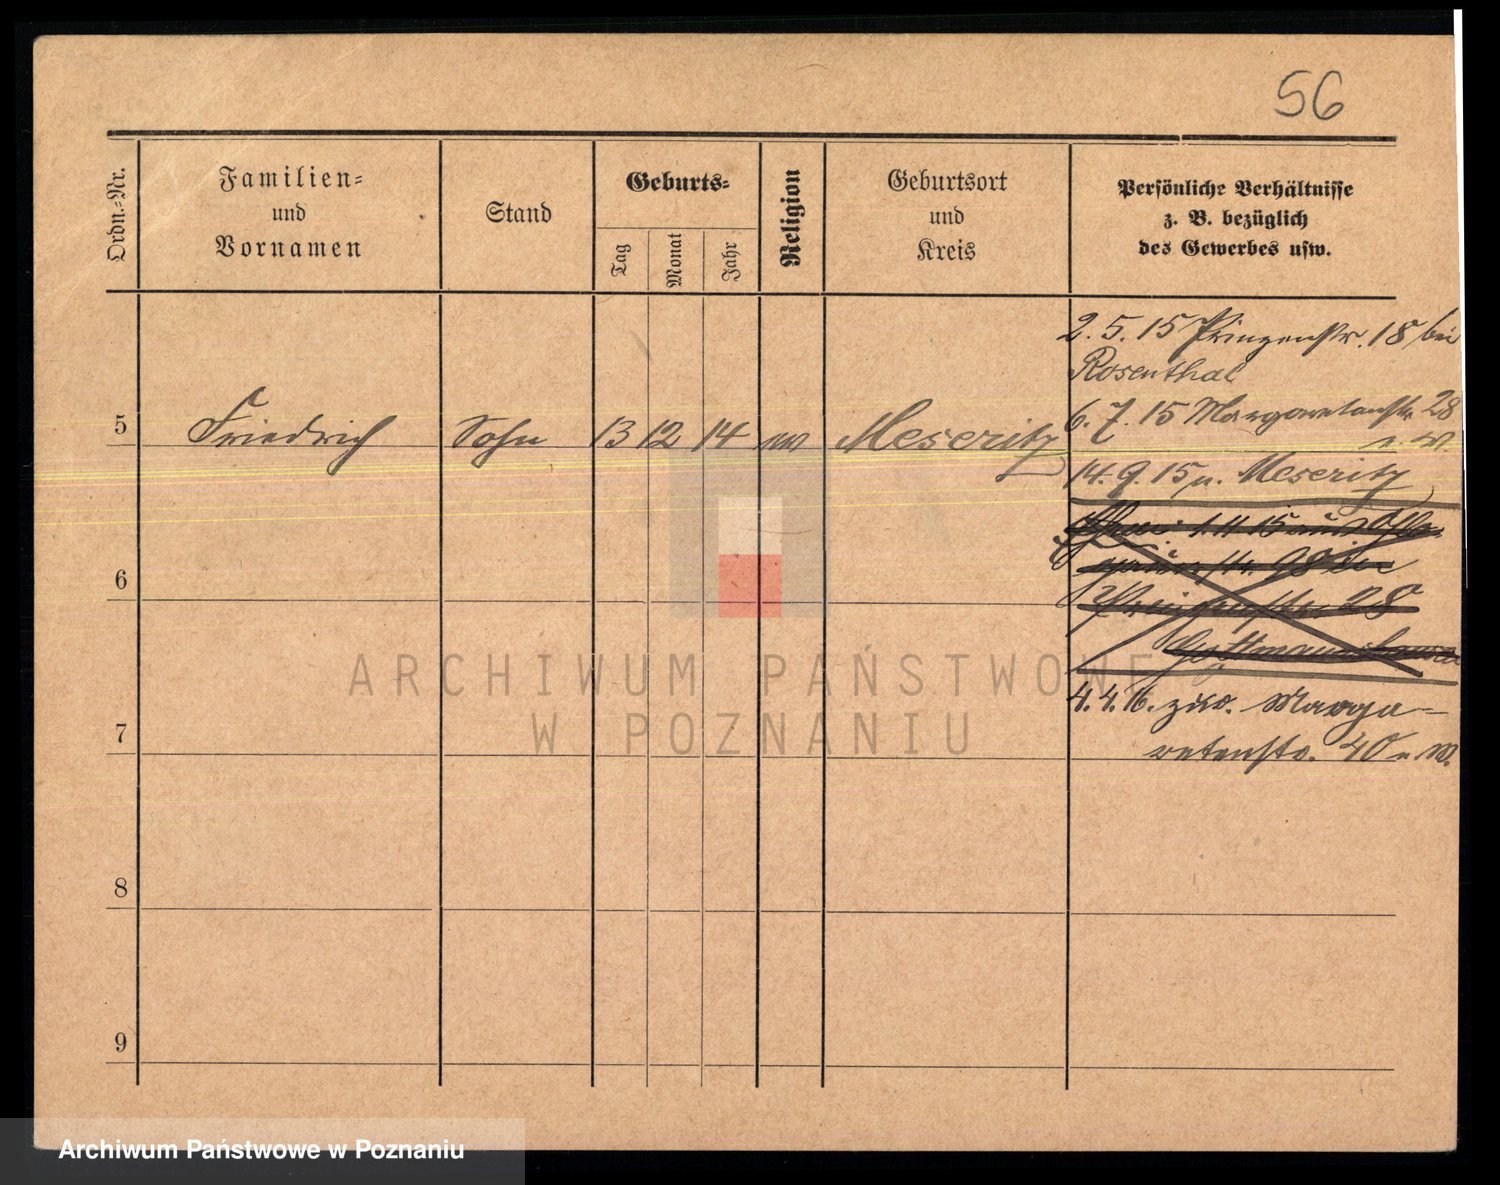 56
Ordn.-Nr.
Familien-
und
Vornamen
Stand
Geburts-
Tag
Monat
Jahr
Religion
Geburtsort
und
Kreis
Persönliche Verhältnisse
z. B. bezüglich
des Gewerbes usw.
2. 5. 15 Prinzenstr. 18 bei
Rosenthal
5 Friedrich Sohn 13 12 14 Meseritz
6. 7. 15 Margaretenstr. 28
14. 9. 15 n. Meseritz
1. 11 15
6
28
7
4. 4. 16. zur. Marga-
retenstr. 40
8
9
ARCHIWUM PAŃSTWOWE
W POZNANIU
Archiwum Państwowe w Poznaniu